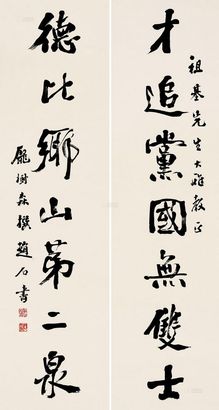 祖基先生大雅教正
才追黨國無雙士
德比鄉山第二泉
龐樹森撰 趙石書